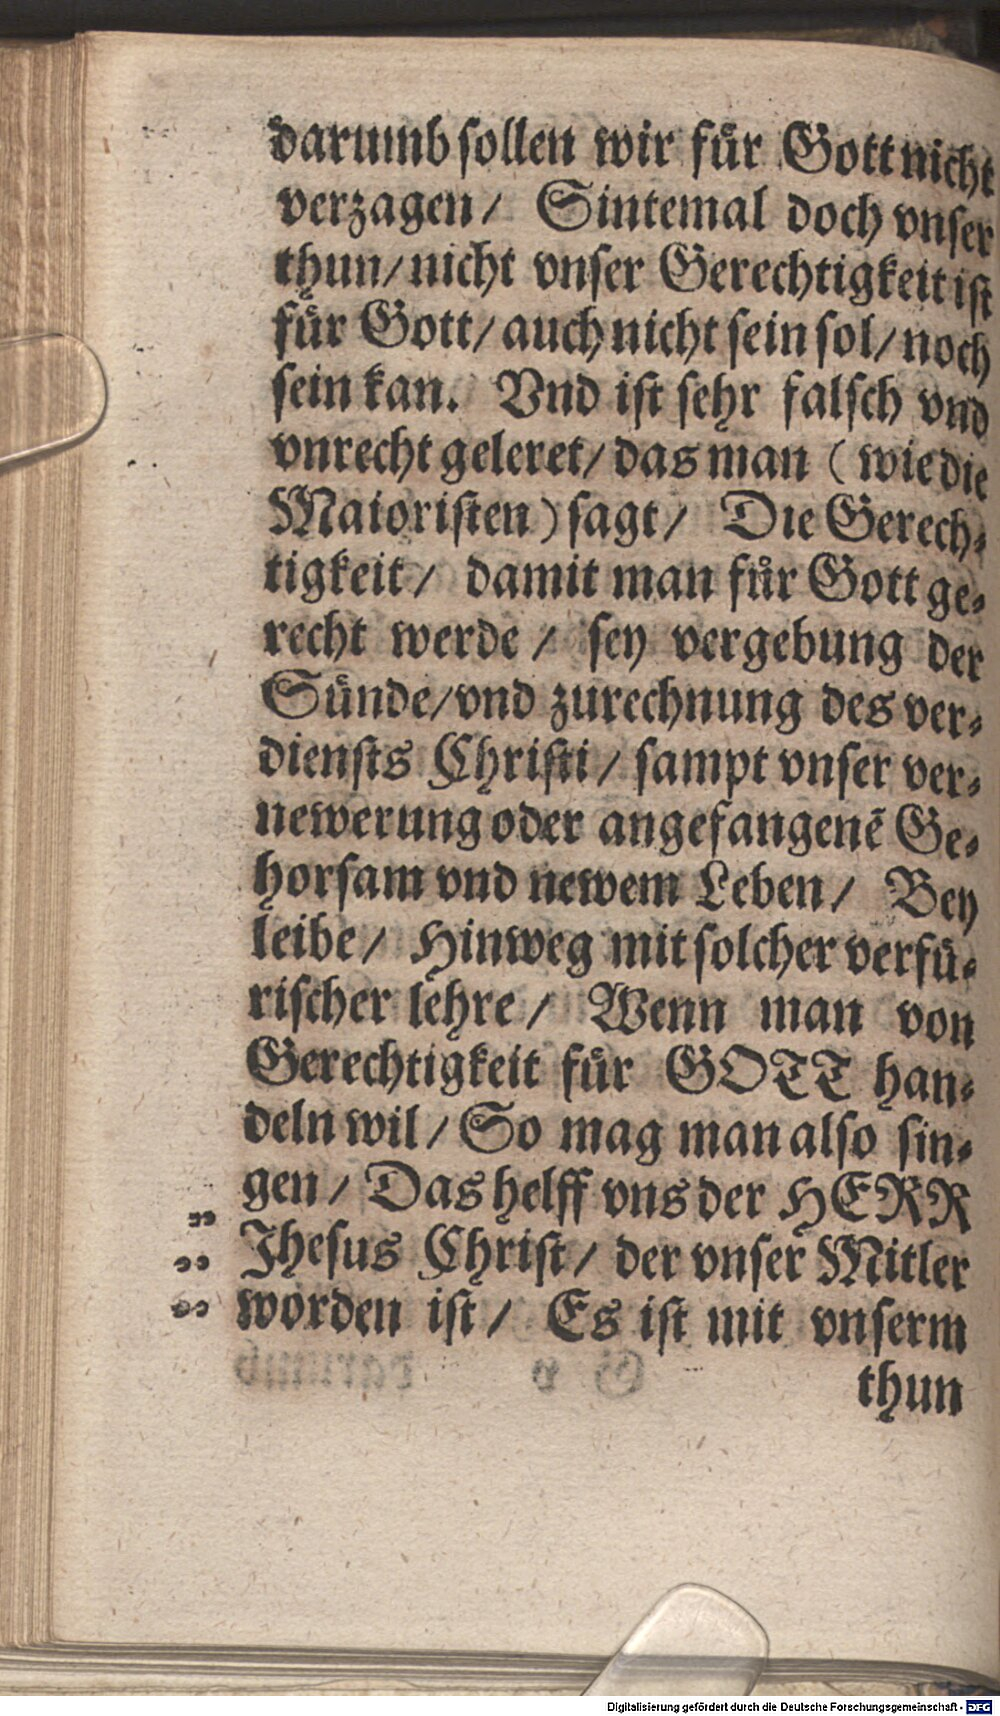 darumb sollen wir fuͤr Gott nicht
verzagen / Sintemal doch vnser
thun / nicht vnser Gerechtigkeit ist
fuͤr Gott / auch nicht sein sol / noch
sein kan. Vnd ist sehr falsch vnd
vnrecht geleret / das man ( wie die
Maioristen ) sagt / Die Gerech⸗
tigkeit / damit man fuͤr Gott ge⸗
recht werde / sey vergebung der
Suͤnde / vnd zurechnung des ver⸗
diensts Christi / sampt vnser ver⸗
newerung oder angefangenē Ge⸗
horsam vnd newem Leben / Bey
leibe / Hinweg mit solcher verfuͤ⸗
rischer lehre / Wenn man von
Gerechtigkeit fuͤr GOTT han⸗
deln wil / So mag man also sin⸗
gen / Das helff vns der HERR
„ Jhesus Christ / der vnser Mitler
„ worden ist / Es ist mit vnserm
„
thun
Digitalisierung gefördert durch die Deutsche Forschungsgemeinschaft - DFG